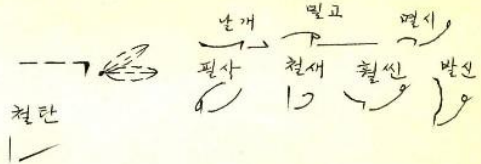 날개 밀고 면시
필상 철새 훨씬 발신
철탄